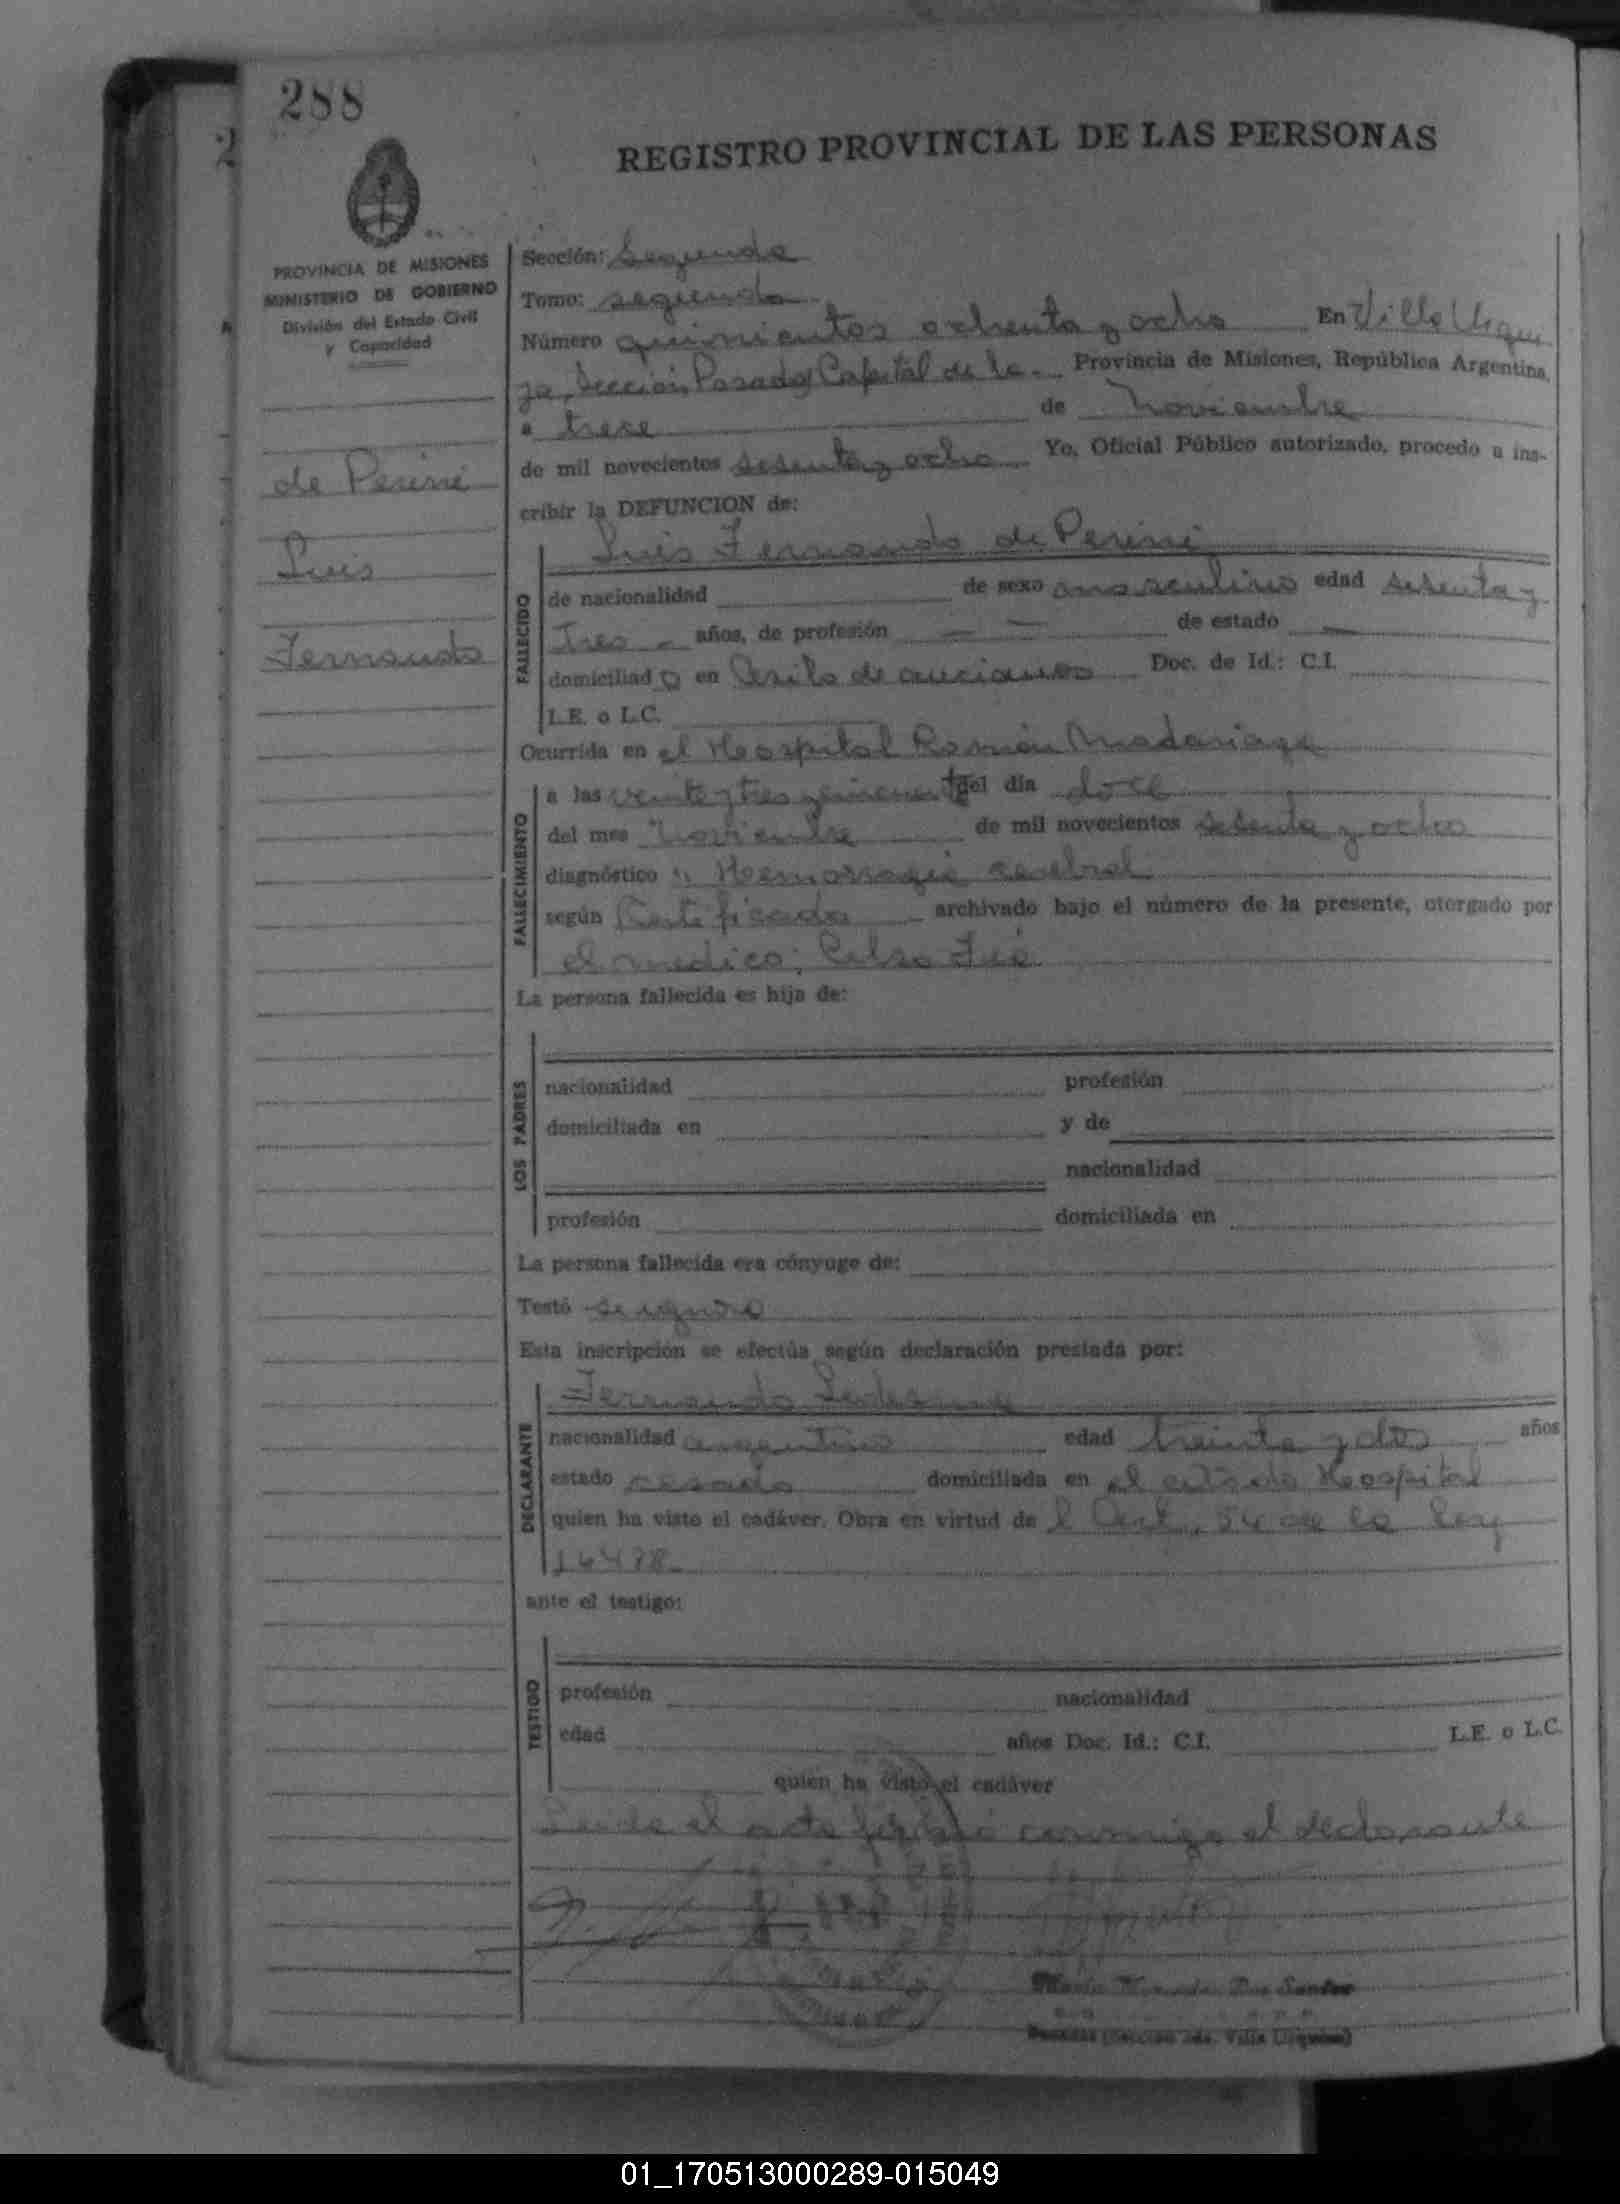 288
REGISTRO PROVINCIAL DE LAS PERSONAS
PROVINCIA DE MISIONES
MINISTERIO DE GOBIERNO
División del Estado Civil
y Capacidad
de Perini
Luis
Fernando
Sección: Segunda
Tomo: segundo
Número quinientos ochenta y ocho En Villa Urqui
za, Sección, Posadas Capital de la Provincia de Misiones, República Argentina,
a trece de Noviembre
de mil novecientos sesenta y ocho Yo, Oficial Público autorizado, procedo a ins-
cribir la DEFUNCION de:
Luis Fernando de Perini
FALLECIDO
de nacionalidad de sexo masculino edad sesenta y
Tres - años, de profesión — — de estado —
domiciliado en Asilo de ancianos Doc. de Id.: C.I.
L.E. o L.C.
Ocurrida en el Hospital Ramón Madariaga
FALLECIMIENTO
a las veinte y tres y cincuenta del día doce
del mes Noviembre de mil novecientos sesenta y ocho
diagnóstico " Hemorragia cerebral
según Certificado archivado bajo el número de la presente, otorgado por
el medico; Celso
La persona fallecida es hija de:
LOS PADRES
nacionalidad profesión
domiciliada en y de
nacionalidad
profesión domiciliada en
La persona fallecida era cónyuge de:
Testó se ignora
Esta inscripción se efectúa según declaración prestada por:
DECLARANTE
Fernando Ledesma
nacionalidad argentino edad treinta y dos años
estado casado domiciliada en el citado Hospital
quien ha visto el cadáver. Obra en virtud de l Art. 54 de la Ley
16478-
ante el testigo:
TESTIGO
profesión nacionalidad
edad años Doc. Id.: C.I. L.E. o L.C.
quien ha visto el cadáver
Leida el acta firmó conmigo el declarante
Dos Santos
Posadas (Sección 2da. Villa Urquiza)
01_170513000289-015049